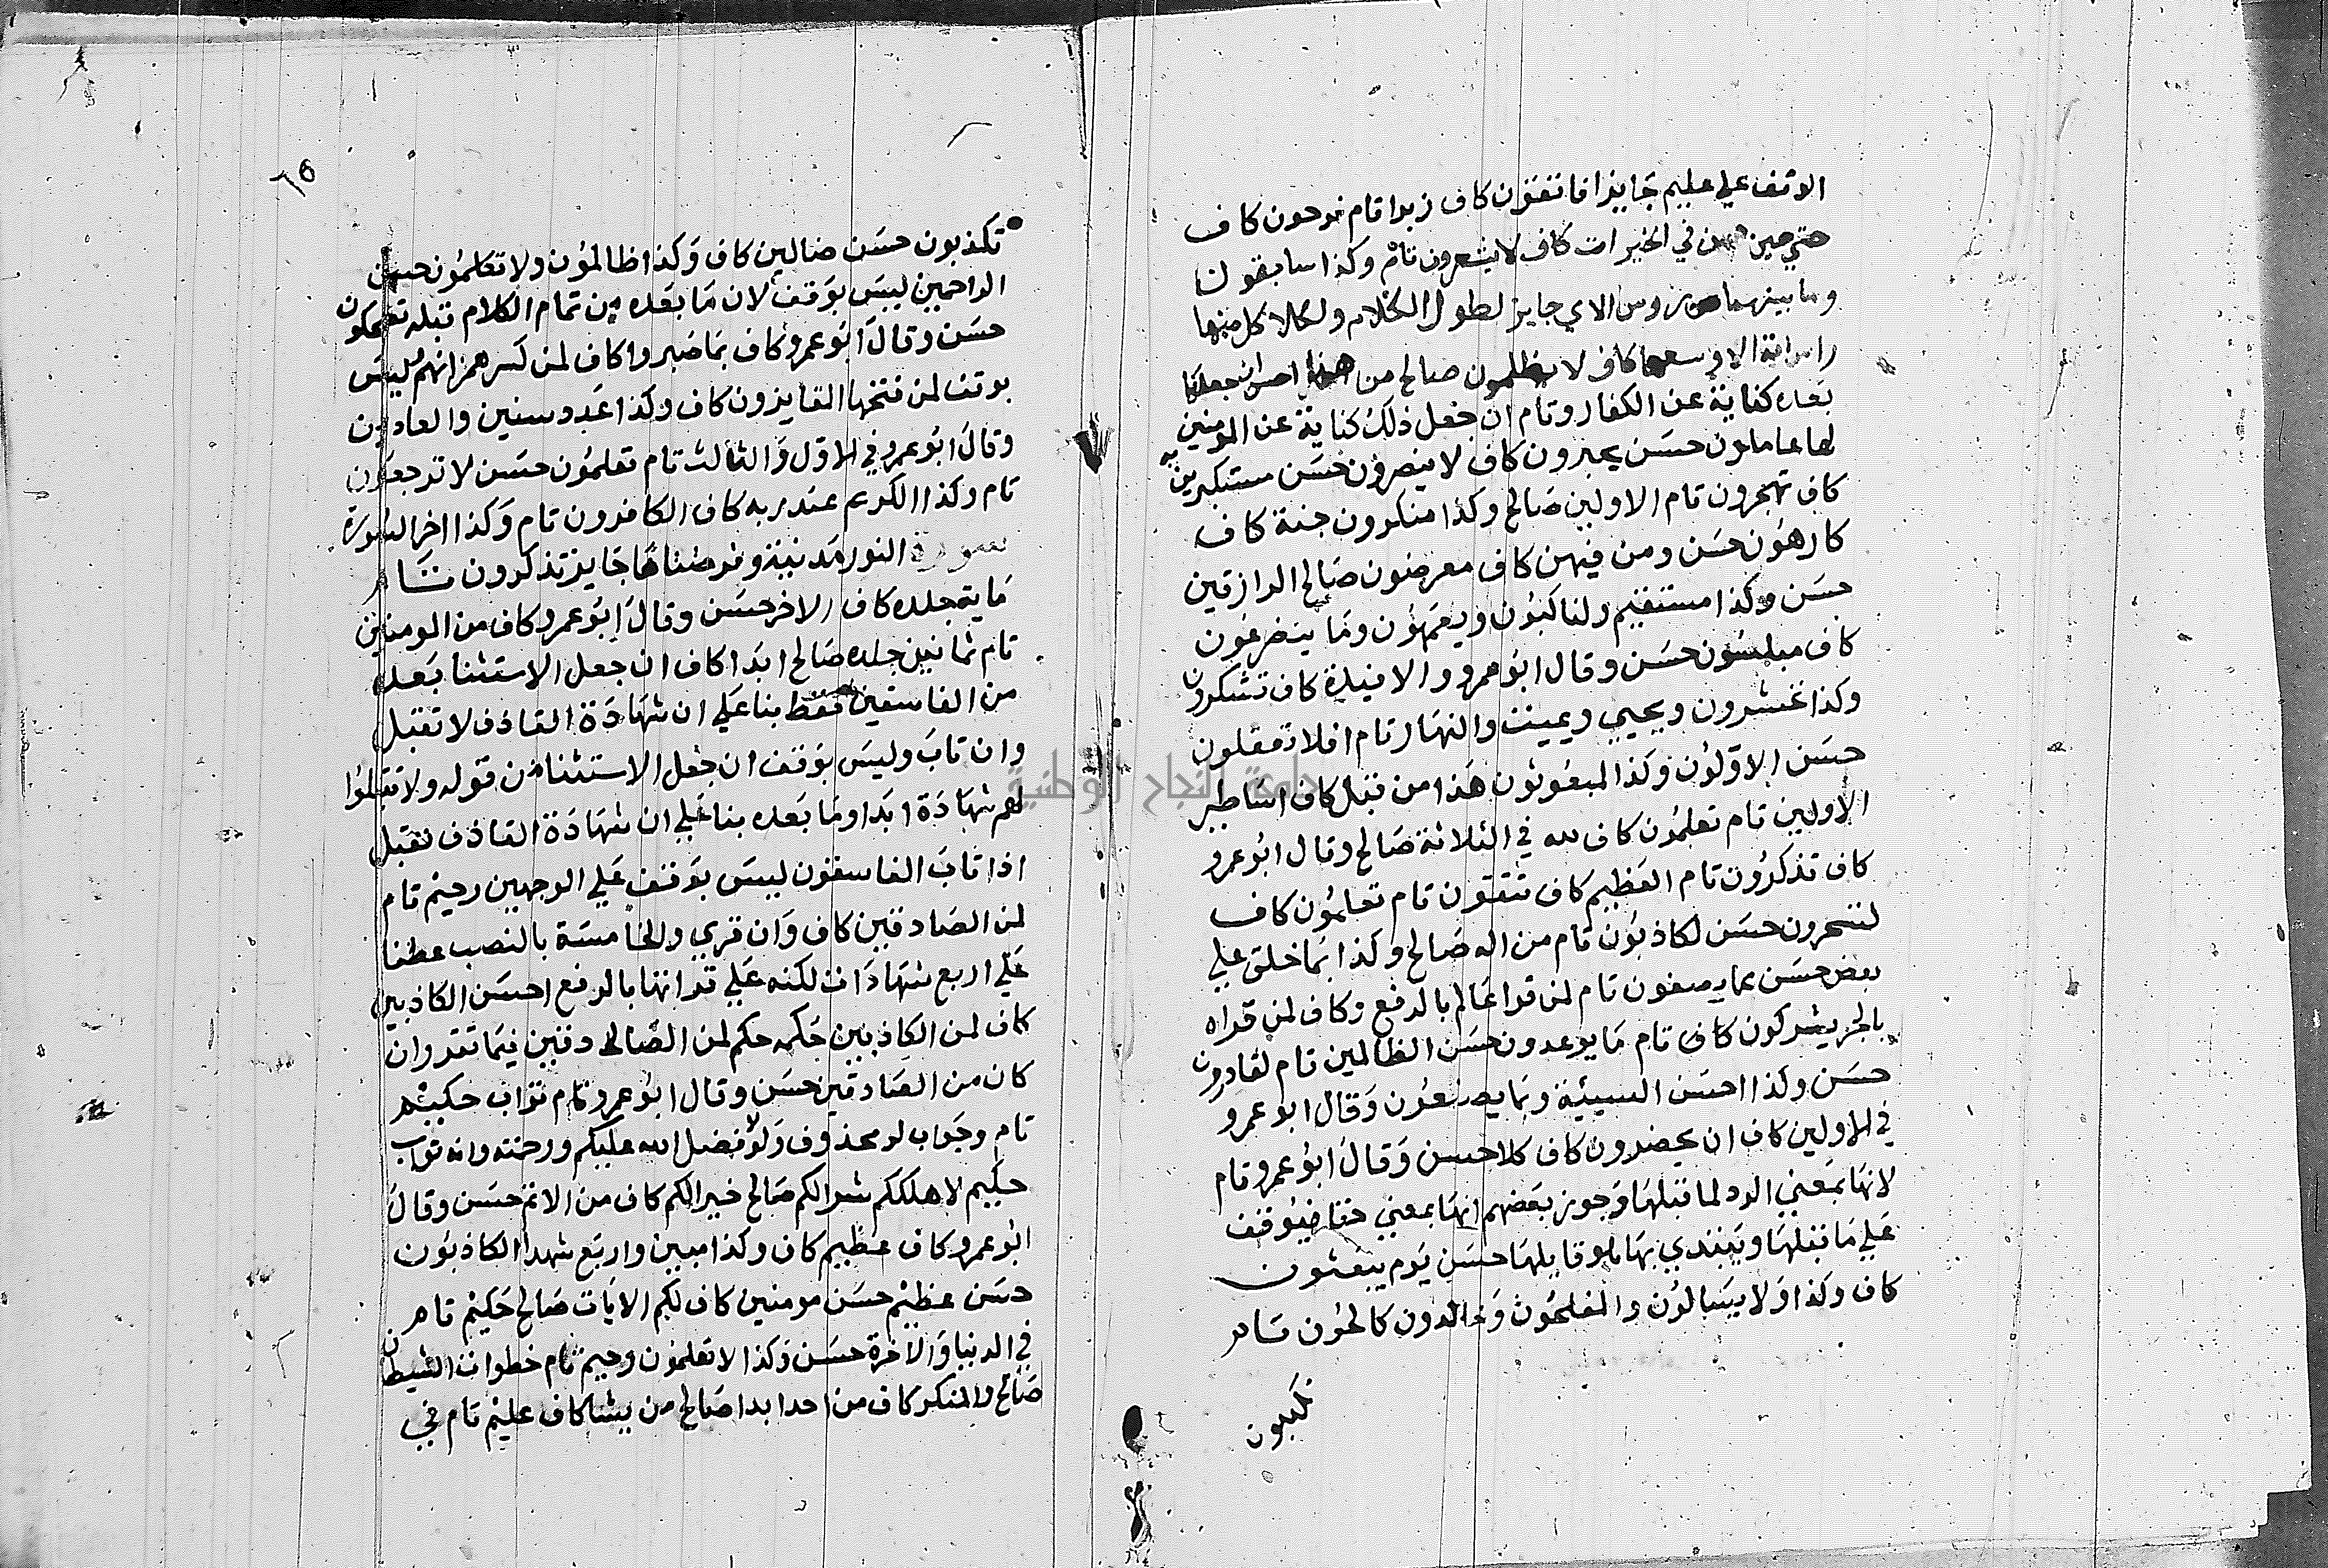 الوقف علي عليم جايزا فاتقون كاف زبرا تام فرحون كاف
حتي حين في الخيرات كاف لا يشعرون تام وكذا سابقون
وما بينهما من روس الاي جايز لطول الكلام ولكلا كل منها
الا وسعها كاف لا يظلمون صالح من هذا احسن ان جعل ما
بعده كناية عن الكفار وتام ان جعل ذلك كناية عن المومنين
لها عاملون حسن يجيرون كاف لا ينصرون حسن مستكبرين به
كاف تهجرون تام الاولين صالح وكذا منكرون جنة كاف
كارهون حسن ومن فيهن كاف معرضون صالح الرازقين
حسن وكذا مستقيم ولناكبون ويعمهون وما يتضرعون
كاف مبلسون حسن وقال ابو عمرو والافيدة كاف تشكرون
وكذا تحشرون ويحيي ويميت والنهار تام افلا تعقلون
حسن الاولون وكذا لمبعوثون هذا من قبل كاف اساطير
الاولين تام تعلمون كاف لله في الثلاثة صالح وقال ابو عمرو
كاف تذكرون تام العظيم كاف تتقون تام تعلمون كاف
تسحرون حسن لكاذبون تام من اله صالح وكذا بما خلق علي
بعض حسن عما يصفون تام لمن قرا عالم بالرفع وكاف لمن قراه
بالجر يشركون كاف تام ما يوعدون حسن الظالمين تام لقادرون
حسن وكذا احسن السيئة وبما يصفون وقال ابو عمرو
في الاولين كاف ان يحضرون كاف كلا حسن وقال ابو عمرو تام
لانها بمعني الرد لما قبلها وجوز بعضهم انها بمعني حقا فيوقف
علي ما قبلها ويبتدي بها هو قايلها حسن يوم يبعثون
كاف وكذا ولا يتسالون والمفلحون وخالدون كالحون تام
تكذبون
٦٥
تكذبون حسن ضالين كاف وكذا ظالمون ولا تكلمون حسن
الراحمين ليس بوقف لان ما بعده من تمام الكلام قبله تضحكون
حسن وقال ابو عمرو كاف بما صبروا كاف لمن كسر همز انهم وليس
بوقف لمن فتحها الفايزون كاف وكذا عدد سنين والعادين
وقال ابو عمرو في الاول والثالث تام تعلمون حسن لا ترجعون
تام وكذا الكريم عند ربه كاف الكافرون تام وكذا اخر السورة
سورة النور مدنية وفرضناها جايز تذكرون تام
ماية جلده كاف الاخر حسن وقال ابو عمرو كاف من المومنين
تام ثمانين جلده صالح ابدا كاف ان جعل الاستثنا بعده
من الفاسقين فقط بنا علي ان شهادة القاذف لا تقبل
وان تاب وليس بوقف ان جعل الاستثنا من قوله ولا تقبلوا
لهم شهادة ابدا وما بعده بنا علي ان شهادة القاذف تقبل
اذا تاب الفاسقون ليس بوقف علي الوجهين رحيم تام
لمن الصادقين كاف وان قري والخامسة بالنصب عطفا
علي اربع شهادات لكنه علي قراتها بالرفع احسن الكاذبين
كاف لمن الكاذبين حكمه حكم لمن الصالحادقين فيما تقرر وان
كان من الصادقين حسن وقال ابو عمرو تام تواب حكيم
تام وجواب لو محذوف ولولا فضل الله عليكم ورحمته وانه تواب
حكيم لاهلككم شرا لكم صالح خير لكم كاف من الاثم حسن وقال
ابو عمرو كاف عظيم كاف وكذا مبين واربع شهدا الكاذبون
حسن عظيم حسن مومنين كاف لكم الايات صالح حكيم تام
في الدنيا والاخرة حسن وكذا لا تعلمون رحيم تام خطوات الشيطان
صالح والمنكر كاف من احد ابدا صالح من يشا كاف عليم تام في
جامعة النجاح الوطنية